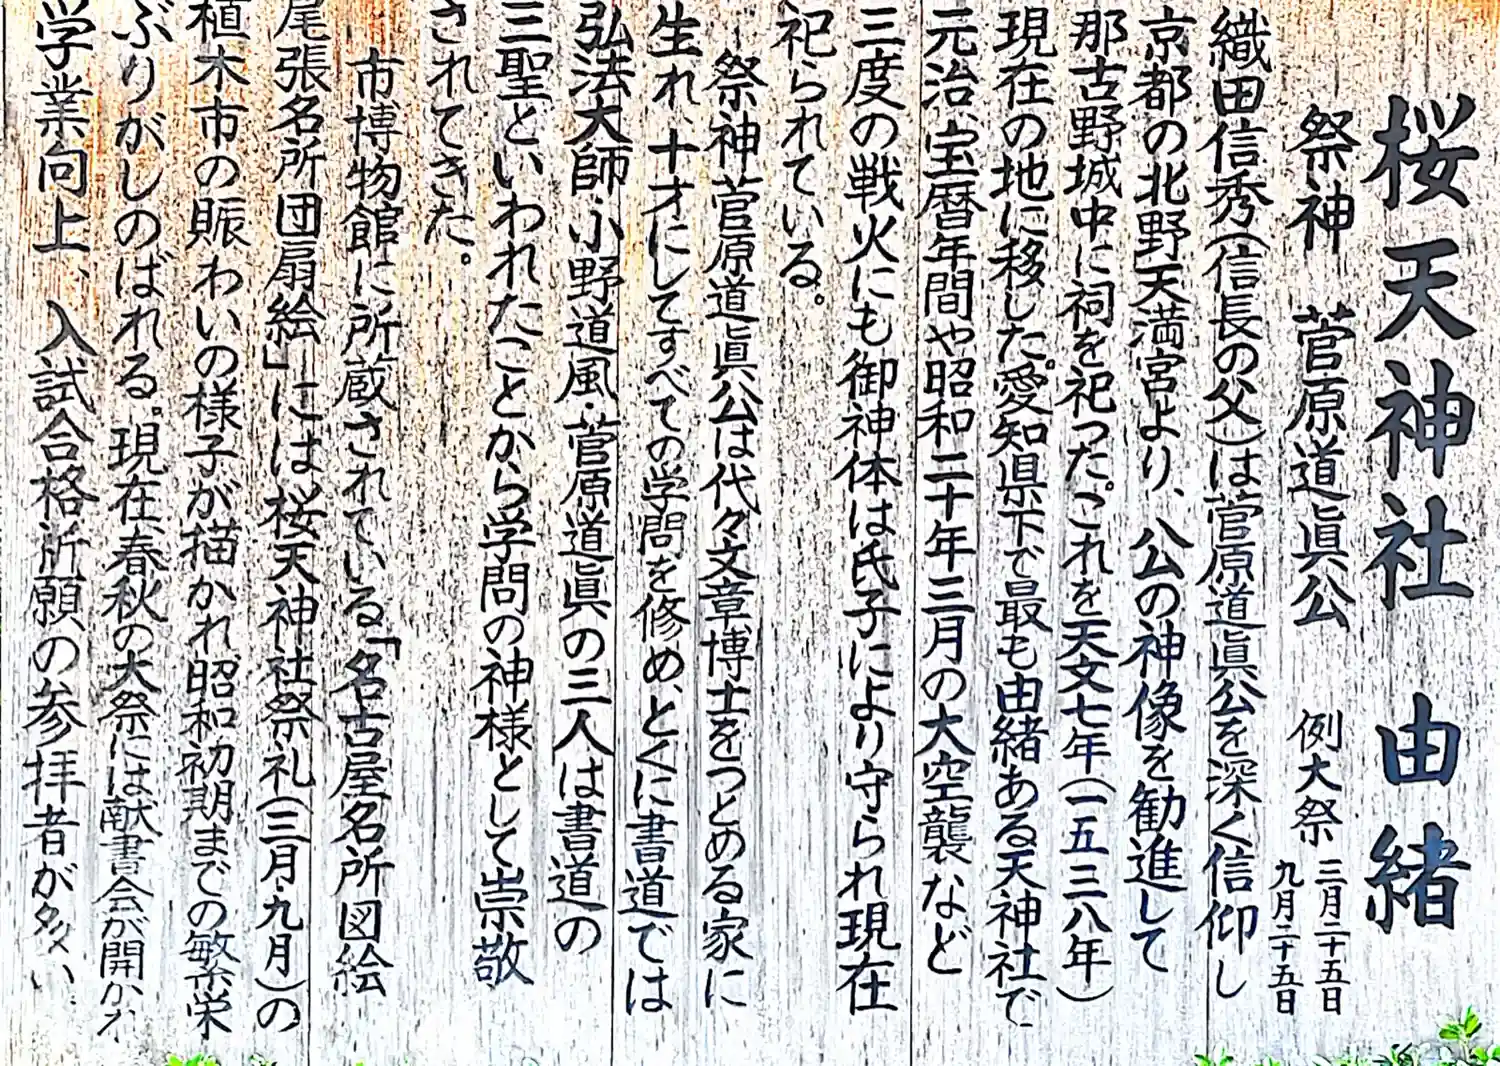 桜天神社 由緒
祭神 菅原道眞公 例大祭 三月二十五日
九月二十五日
織田信秀(信長の父)は菅原道眞公を深く信仰し
京都の北野天満宮より、公の神像を勧進して
那古野城中に祠を祀った。これを天文七年(一五三八年)
現在の地に移した。愛知県下で最も由緒ある天神社で
元治、宝暦年間や昭和二十年三月の大空襲など
三度の戦火にも御神体は氏子により守られ現在
祀られている。
祭神菅原道眞公は代々文章博士をつとめる家に
生れ、十才にしてすべての学問を修め、とくに書道では
弘法大師・小野道風・菅原道眞の三人は書道の
三聖といわれたことから学問の神様として崇敬
されてきた。
市博物館に所蔵されている「名古屋名所図絵
尾張名所団扇絵」には、桜天神社祭礼(三月・九月)の
植木市の賑わいの様子が描かれ昭和初期までの繁栄
ぶりがしのばれる。現在、春秋の大祭には献書会が開かれ
学業向上、入試合格祈願の参拝者が多い。